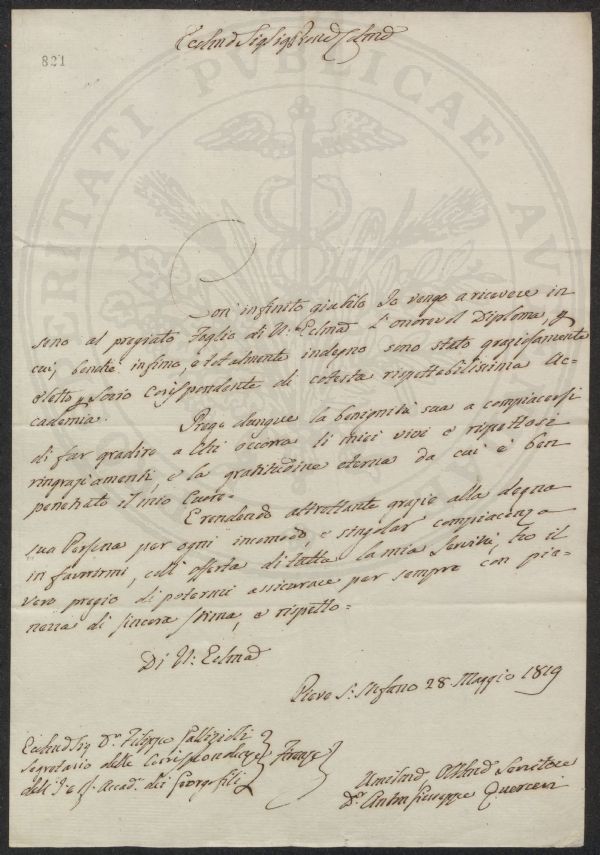 821
Eccl̃mo Sig. Sig. Prone Col̃mo
Con infinito giubilo Io vengo a ricevere in
seno al pregiato Foglio di V: Eccl̃ma L'onorevol Diploma, p
cui, benchè infimo, e totalmente indegno sono stato graziosamente
eletto p Socio Corrispondente di cotesta rispettabilissima Ac=
cademia. Prego dunque la benignità sua a compiacersi
di far gradire a Chi occorra li miei vivi e rispettosi
ringraziamenti, e la gratitudine eterna da cui è ben
penetrato il mio Cuore=
E rendendo altrettante grazie alla degna
sua Persona per ogni incomodo, e singolar compiacenza
in favorirmi, coll' offerta di tutta la mia Servitù, ho il
vero pregio di potermi assicurare per sempre con pie=
nezza di sincera stima, e rispetto=
Di V: Eccl̃ma
Pieve S. Stefano 28. Maggio 1819
Eccl̃mo Sig. Dr. Filippo Gallizioli
Segretario delle Corrispondenze Firenze
dell' I. e R. Accad. dei Georgofili
Umilmo, Obblmo Servitore
Dr. Anton Giuseppe Querceti